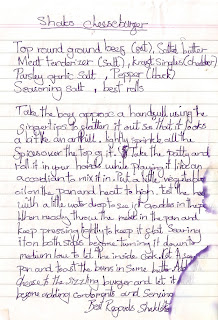 Shabs cheeseburger
Top round ground beef (pat), Salted butter
Meat Tenderizer (salt), Kraft Singles (cheddar)
Parsley garlic salt, Pepper (black)
Seasoning salt, best rolls
Take the beef approx a handfull using the
fingertips to flatten it out so that it looks
a bit like an anthill, lightly sprinkle all the
Spices over the top of it. Take the patty and
roll it in your hands while playing it like an
accordian to mix it in. Put a little vegetable
oil on the pan and heat to high, test the heat
with a little water drop to see if it crackles in there
When ready throw the meat in the pan and
Keep pressing lightly to keep it flat. Searing
it on both sides before turning it down to
medium low to let the inside cook. Get a sep
pan and toast the buns in some butter. Add
cheese to the sizzling burger and let it
before adding condiments and serving
Best Regards